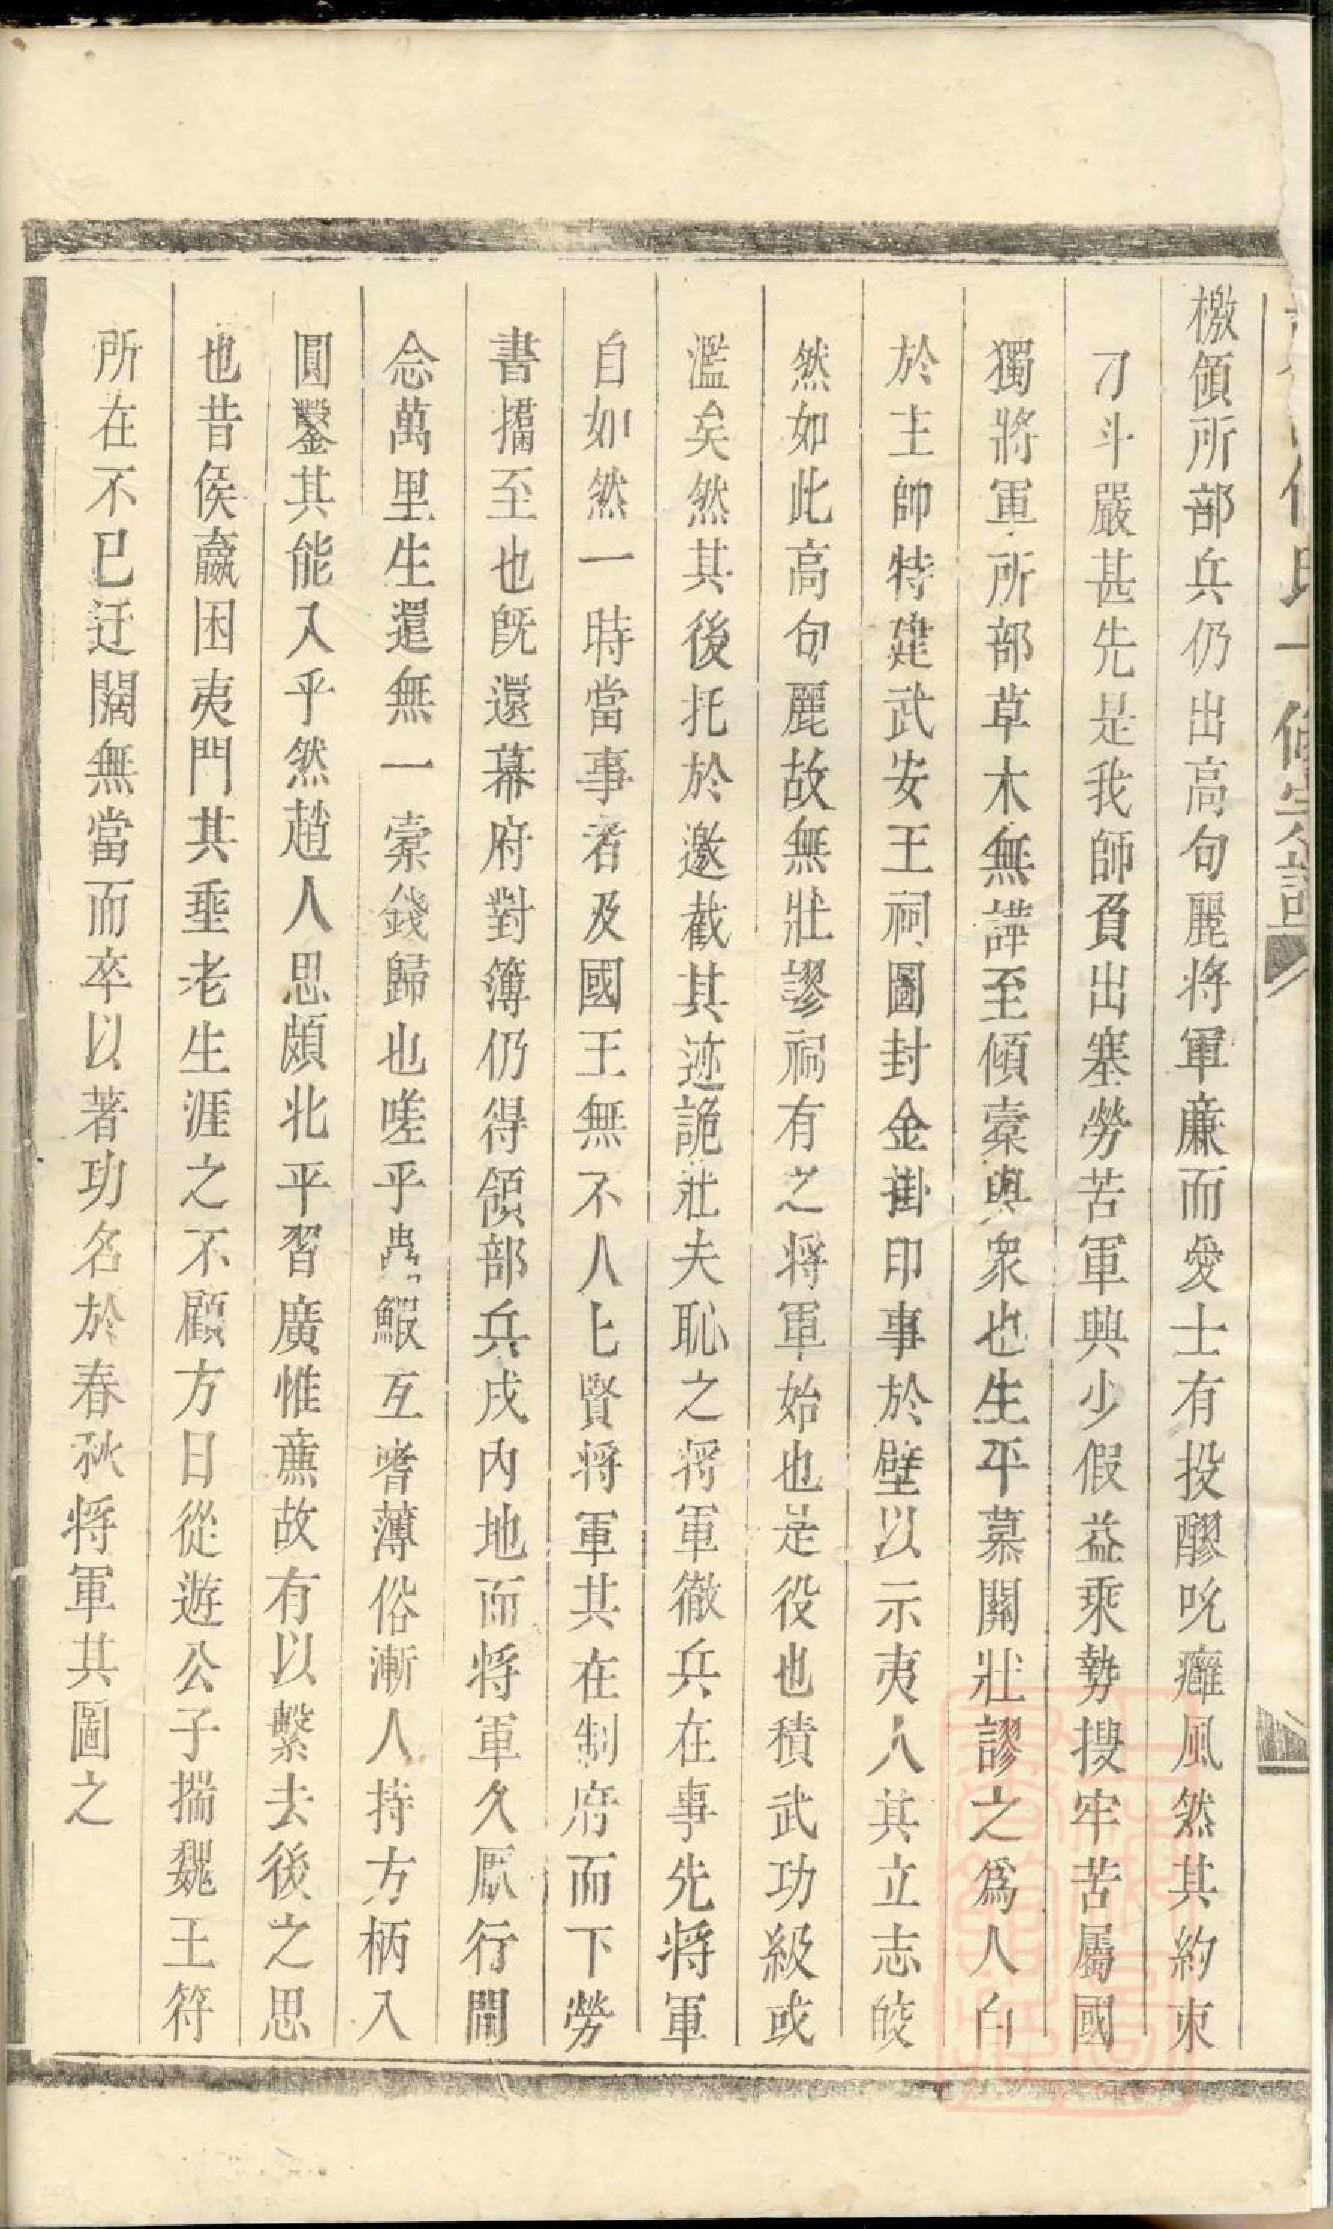 檄領所部兵仍出高句麗将軍亷而愛士有投醪吮癰風然其約束
刁斗嚴甚先是我師頁出塞勞苦軍興少假益乘勢搜牢苦屬國
獨將軍所部草木無譁至傾槖與衆也生平慕關壯謬之爲人白
於主帥特建武安王祠圖封金掛印事於壁以示夷人其立志皎
然如此高句麗故無壯謬祠有之将軍始也是役也積武功級或
濫矣然其後托於邀截其迹詭壯夫恥之將軍徹兵在事先將軍
自如然一時當事者及國王無不人七賢将軍其在制府而下勞
書攟至也旣還幕府對簿仍得領部兵戍内地而将軍久厭行間
念萬里生還無一槖錢歸也嗟乎鰕互嗜薄俗漸人持方柄入
圓鑿其能入乎然趙人思頗北平習廣惟亷故有以繫去後之思
也昔侯嬴困夷門其垂老生涯之不顧方日從遊公子揣魏王符
所在不已迂闊無當而卒以著功名於春秋将軍其圖之
氏